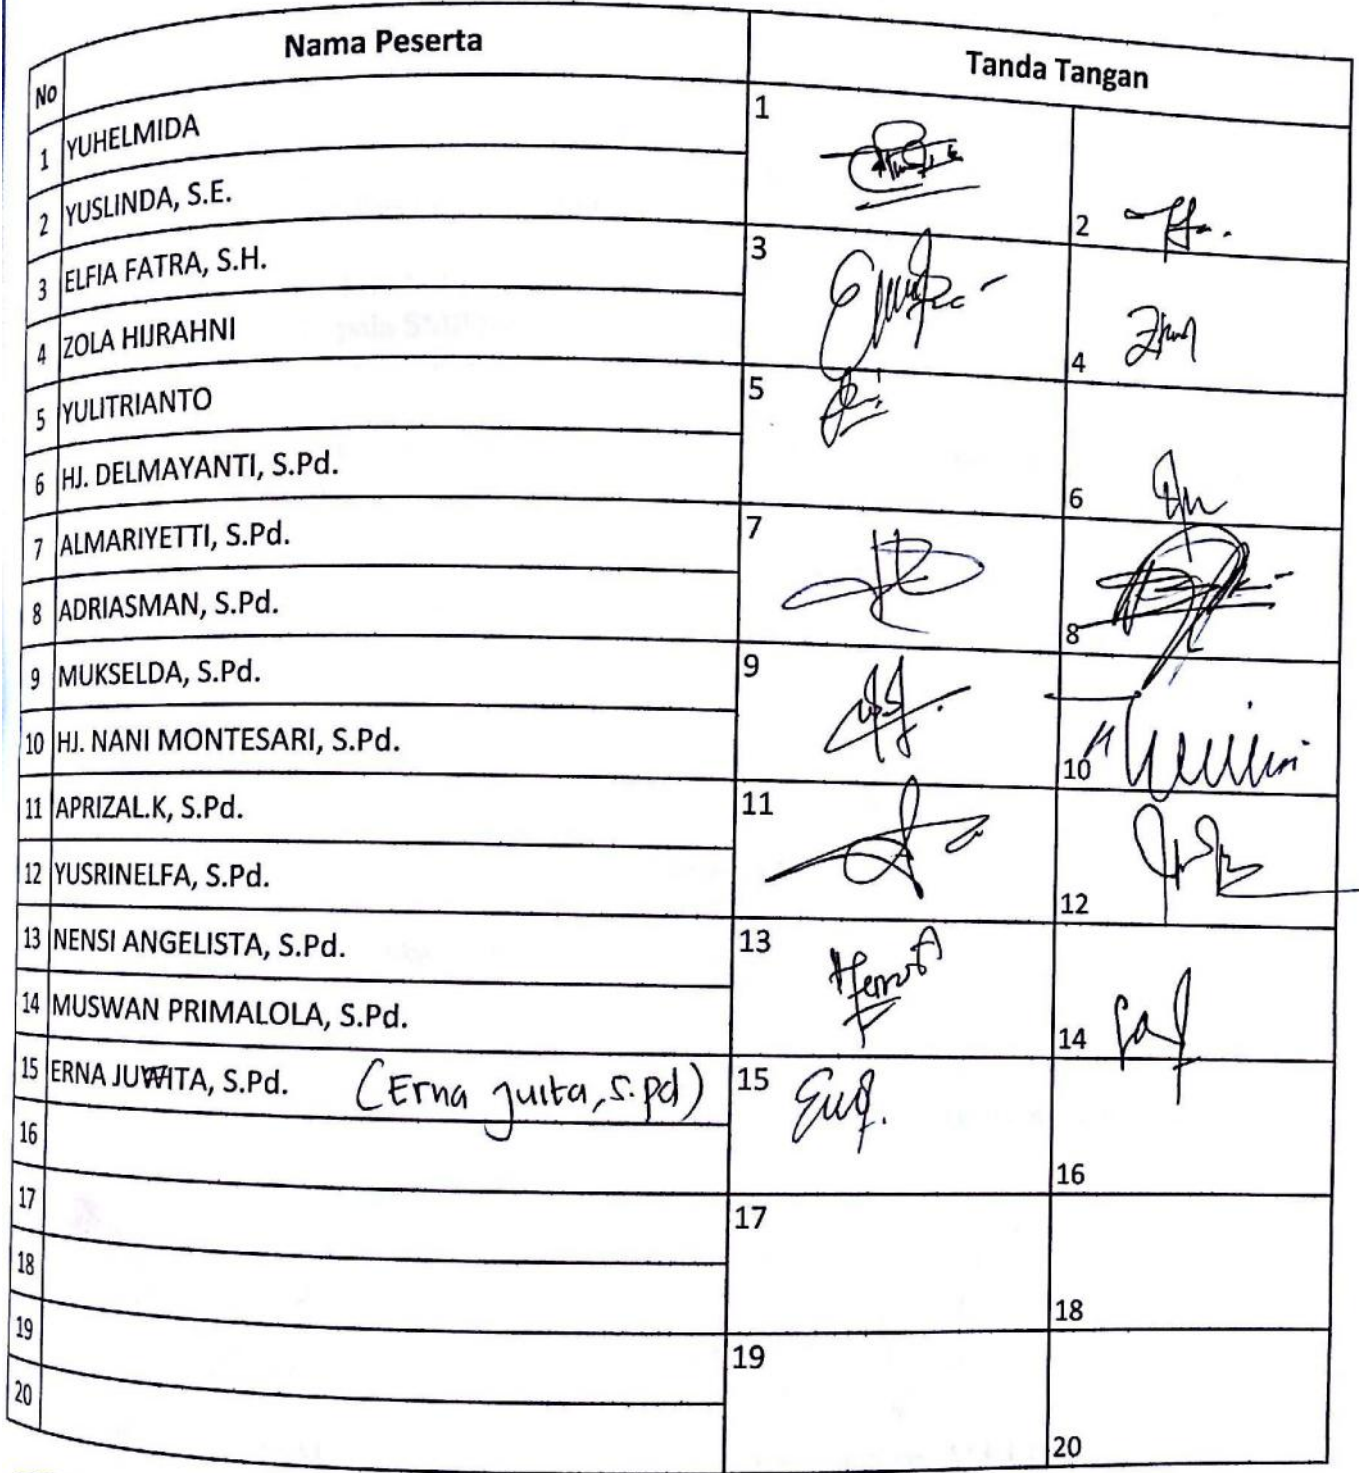 No Nama Peserta Tanda Tangan
1 YUHELMIDA 1
2 YUSLINDA, S.E. 2
3 ELFIA FATRA, S.H. 3
4 ZOLA HIJRAHNI 4
5 YULITRIANTO 5
6 HJ. DELMAYANTI, S.Pd. 6
7 ALMARIYETTI, S.Pd. 7
8 ADRIASMAN, S.Pd. 8
9 MUKSELDA, S.Pd. 9
10 HJ. NANI MONTESARI, S.Pd. 10
11 APRIZAL.K, S.Pd. 11
12 YUSRINELFA, S.Pd. 12
13 NENSI ANGELISTA, S.Pd. 13
14 MUSWAN PRIMALOLA, S.Pd. 14
15 ERNA JUWITA, S.Pd. (Erna Juita, S.pd) 15
16 16
17 17
18 18
19 19
20 20